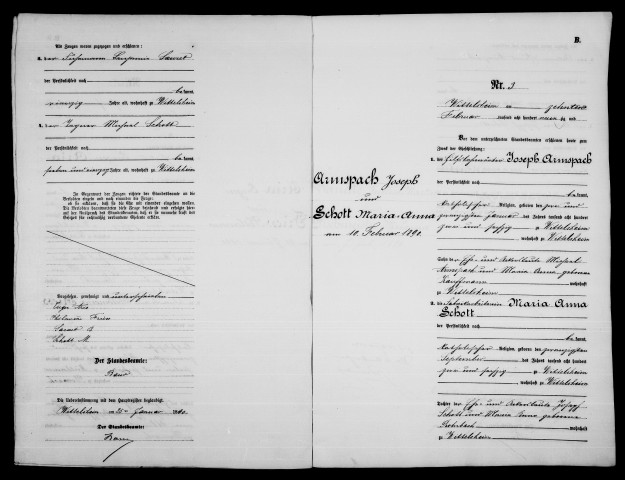 Als Zeugen waren zugezogen und erschienen:
3. der
der Persönlichkeit nach
kannt,
vierzig Jahre alt, wohnhaft zu Wittelsheim
4. der Michael Schott
der Persönlichkeit nach
kannt,
Jahre alt, wohnhaft zu Wittelsheim
In Gegenwart der Zeugen richtete der Standesbeamte an die
Verlobten einzeln und nach einander die Frage:
ob sie erklären, daß sie die Ehe mit einander eingehen wollen.
Die Verlobten beantworteten diese Frage bejahend und erfolgte hier-
auf der Ausspruch des Standesbeamten, daß er sie nunmehr kraft des
Gesetzes für rechtmäßig verbundene Eheleute erkläre.
Vorgelesen, genehmigt und unterschrieben
Schott M.
Der Standesbeamte:
Die Uebereinstimmung mit dem Hauptregister beglaubigt.
Wittelsheim, am Januar 18
Der Standesbeamte:
Armspach Joseph
und
Schott Maria-Anna
am 10. Februar 1890.
B.
Nr. 3
Wittelsheim am zehnten
Februar tausend acht hundert neunzig und
Vor dem unterzeichneten Standesbeamten erschienen heute zum
Zweck der Eheschließung:
1. der Joseph Armspach
der Persönlichkeit nach
kannt,
katholischer Religion, geboren den zwei und
zwanzigsten Januar des Jahres tausend acht hundert
zwei und sechzig zu Wittelsheim
, wohnhaft zu Wittelsheim
Sohn der Ehe- und Ackersleute Michael
Armspach und Maria Anna geborene
Kauffmann wohnhaft
zu Wittelsheim
2. die Maria Anna
Schott
der Persönlichkeit nach
kannt,
katholischer Religion, geboren den zwanzigsten
September des Jahres tausend acht hundert
zwei und sechzig zu Wittelsheim
, wohnhaft zu Wittelsheim
Tochter der Ehe- und Ackersleute Joseph
Schott und Maria Anna geborene
wohnhaft
zu Wittelsheim